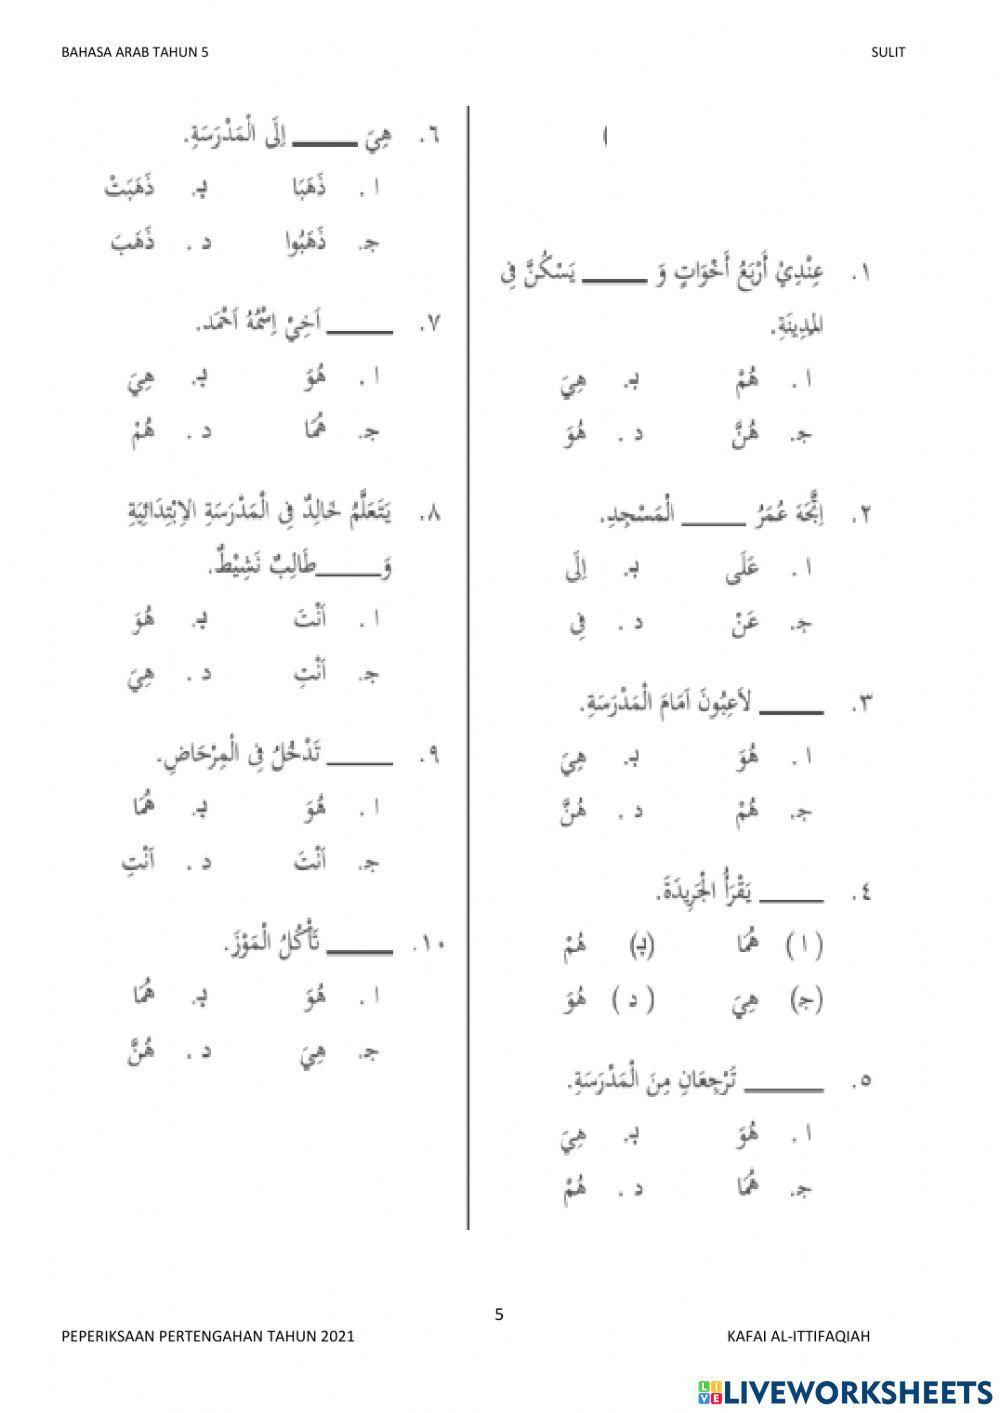 BAHASA ARAB TAHUN 5 SULIT
١. عِنْدِيْ أَرْبَعُ أَخَوَاتٍ وَ ______ يَسْكُنَّ فِى
المَدِينَةِ.
ا . هُمْ بـ. هِيَ
جـ. هُنَّ د . هُوَ
٢. اِتَّجَهَ عُمَرُ ______ الْمَسْجِدِ.
ا . عَلَى بـ. إِلَى
جـ. عَنْ د . فِى
٣. ______ لاَعِبُونَ اَمَامَ الْمَدْرَسَةِ.
ا . هُوَ بـ. هِيَ
جـ. هُمْ د . هُنَّ
٤. ______ يَقْرَأُ الْجَرِيدَةَ.
(ا ) هُمَا (بـ) هُمْ
(جـ) هِيَ ( د ) هُوَ
٥. ______ تَرْجِعَانِ مِنَ الْمَدْرَسَةِ.
ا . هُوَ بـ. هِيَ
جـ. هُمَا د . هُمْ
٦. هِيَ ______ اِلَى الْمَدْرَسَةِ.
ا . ذَهَبَا بـ. ذَهَبَتْ
جـ. ذَهَبُوا د . ذَهَبَ
٧. ______ اَخِيْ اِسْمُهُ اَحْمَد.
ا . هُوَ بـ. هِيَ
جـ. هُمَا د . هُمْ
٨. يَتَعَلَّمُ خَالِدٌ فِى الْمَدْرَسَةِ الاِبْتِدَائِيَّةِ
وَ______طَالِبٌ نَشِيْطٌ.
ا . اَنْتَ بـ. هُوَ
جـ. اَنْتِ د . هِيَ
٩. ______ تَدْخُلُ فِى الْمِرْحَاضِ.
ا . هُوَ بـ. هُمَا
جـ. اَنْتَ د . اَنْتِ
١٠. ______ تَأْكُلُ الْمَوْزَ.
ا . هُوَ بـ. هُمَا
جـ. هِيَ د . هُنَّ
5
PEPERIKSAAN PERTENGAHAN TAHUN 2021 KAFAI AL-ITTIFAQIAH
LIVE LIVEWORKSHEETS